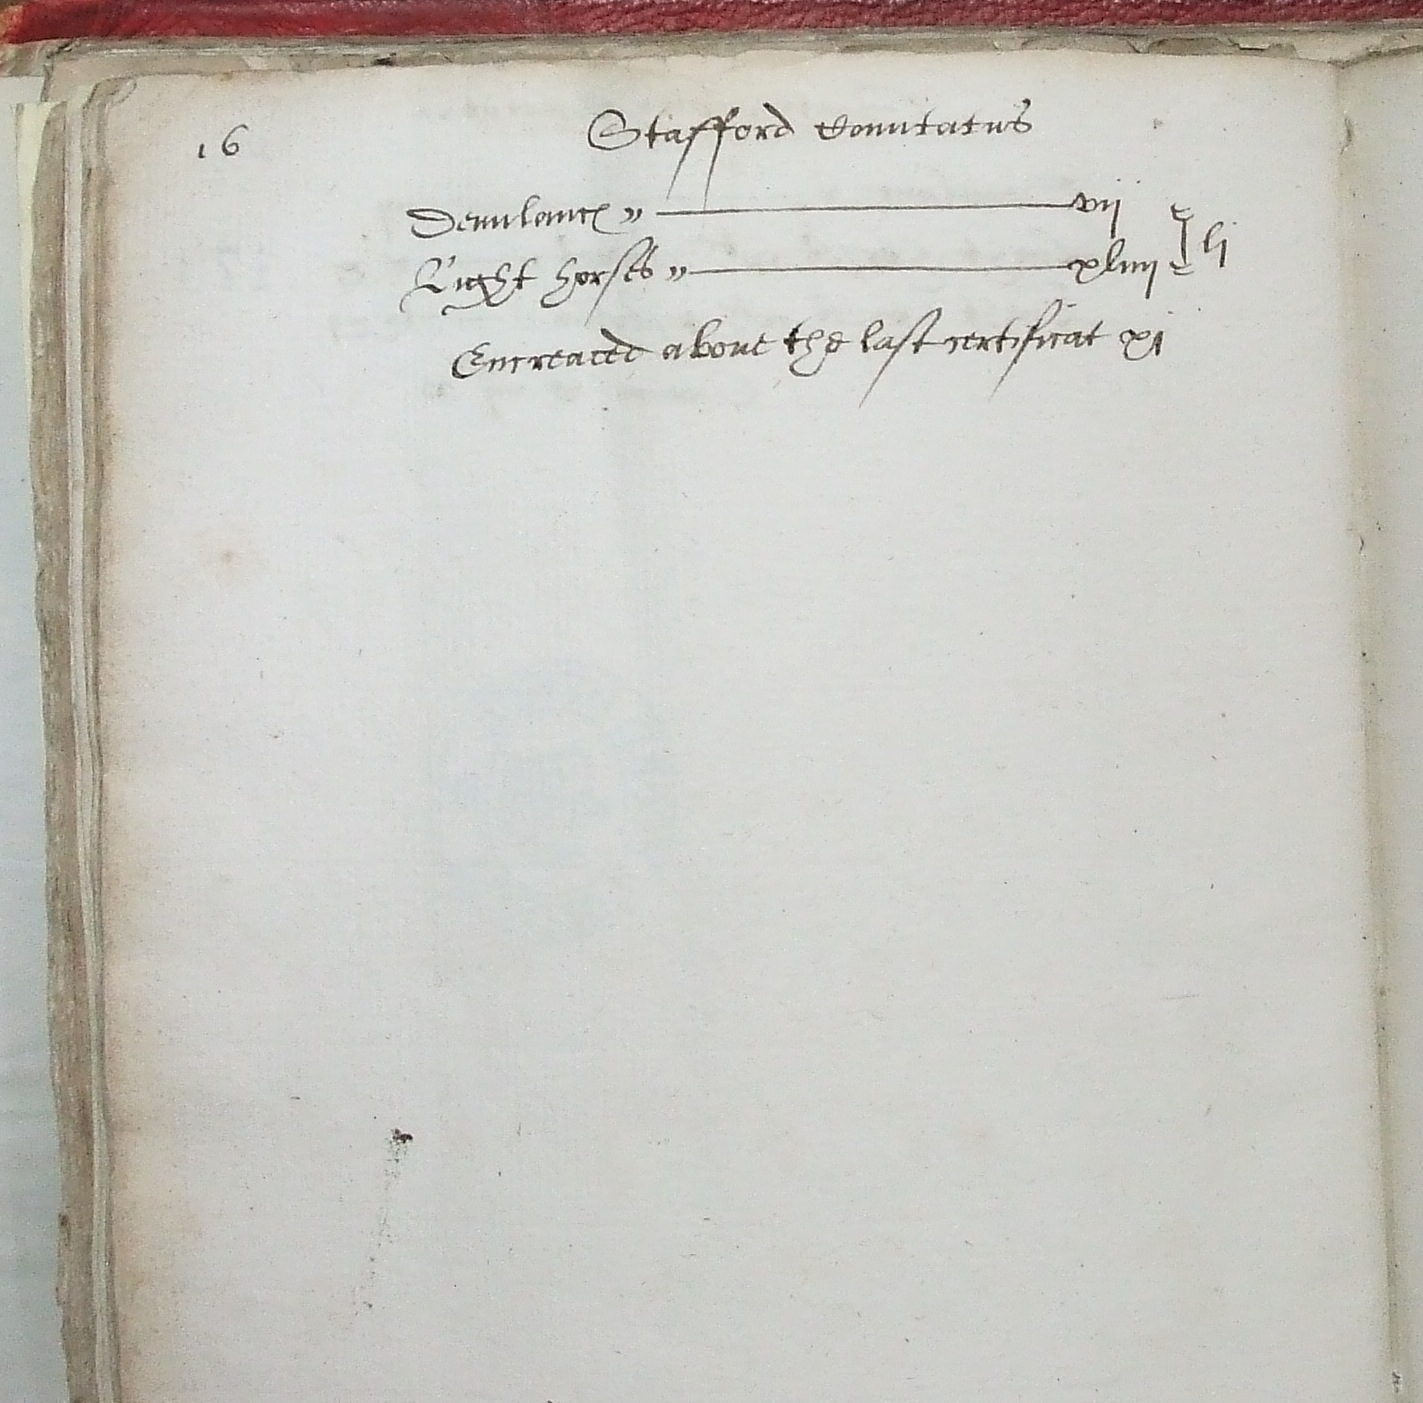 16
Stafford Comitatus
Demilances „ vij
Light horses „ xliiij } lj
Encreaced aboue the last certificat xj